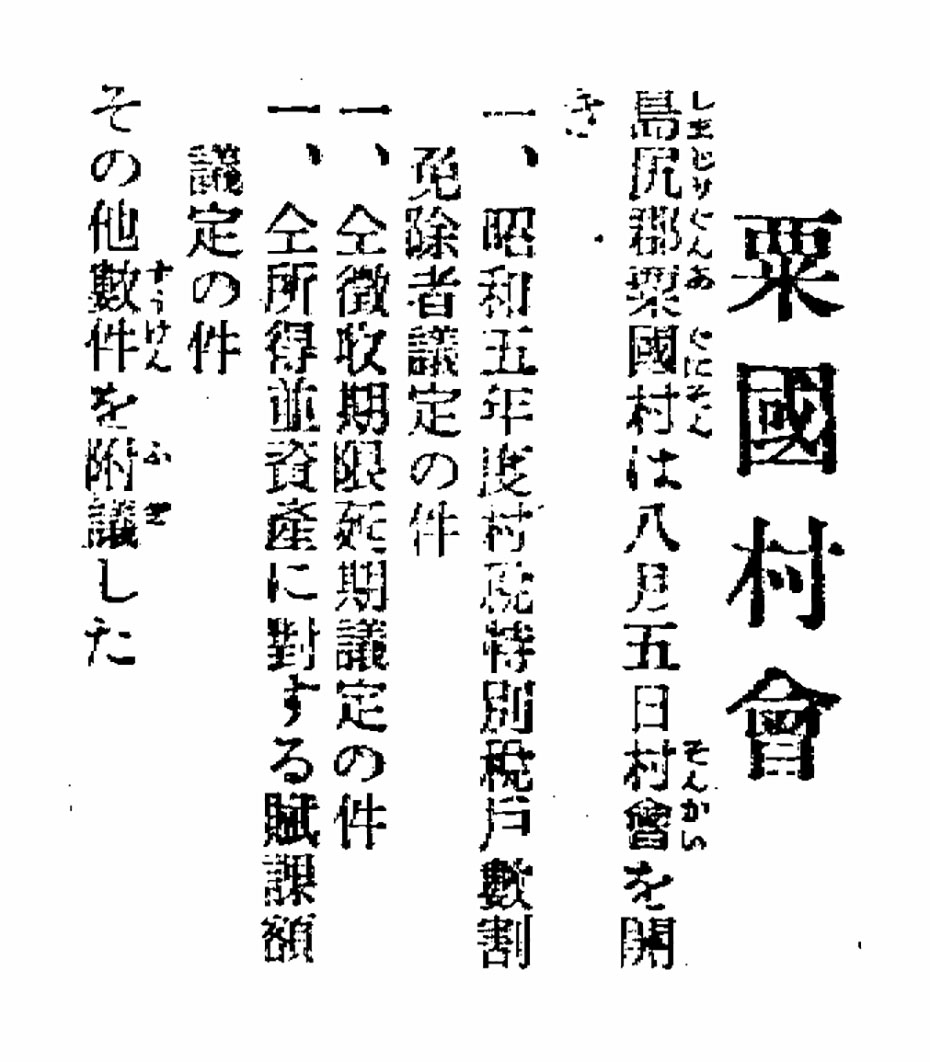 粟國村會
島尻郡粟國村は八月五日村會を開
き
一、昭和五年度村税特別税戶數割
免除者議定の件
一、仝徴收期限延期議定の件
一、仝所得並資產に對する賦課額
議定の件
その他數件を附議した